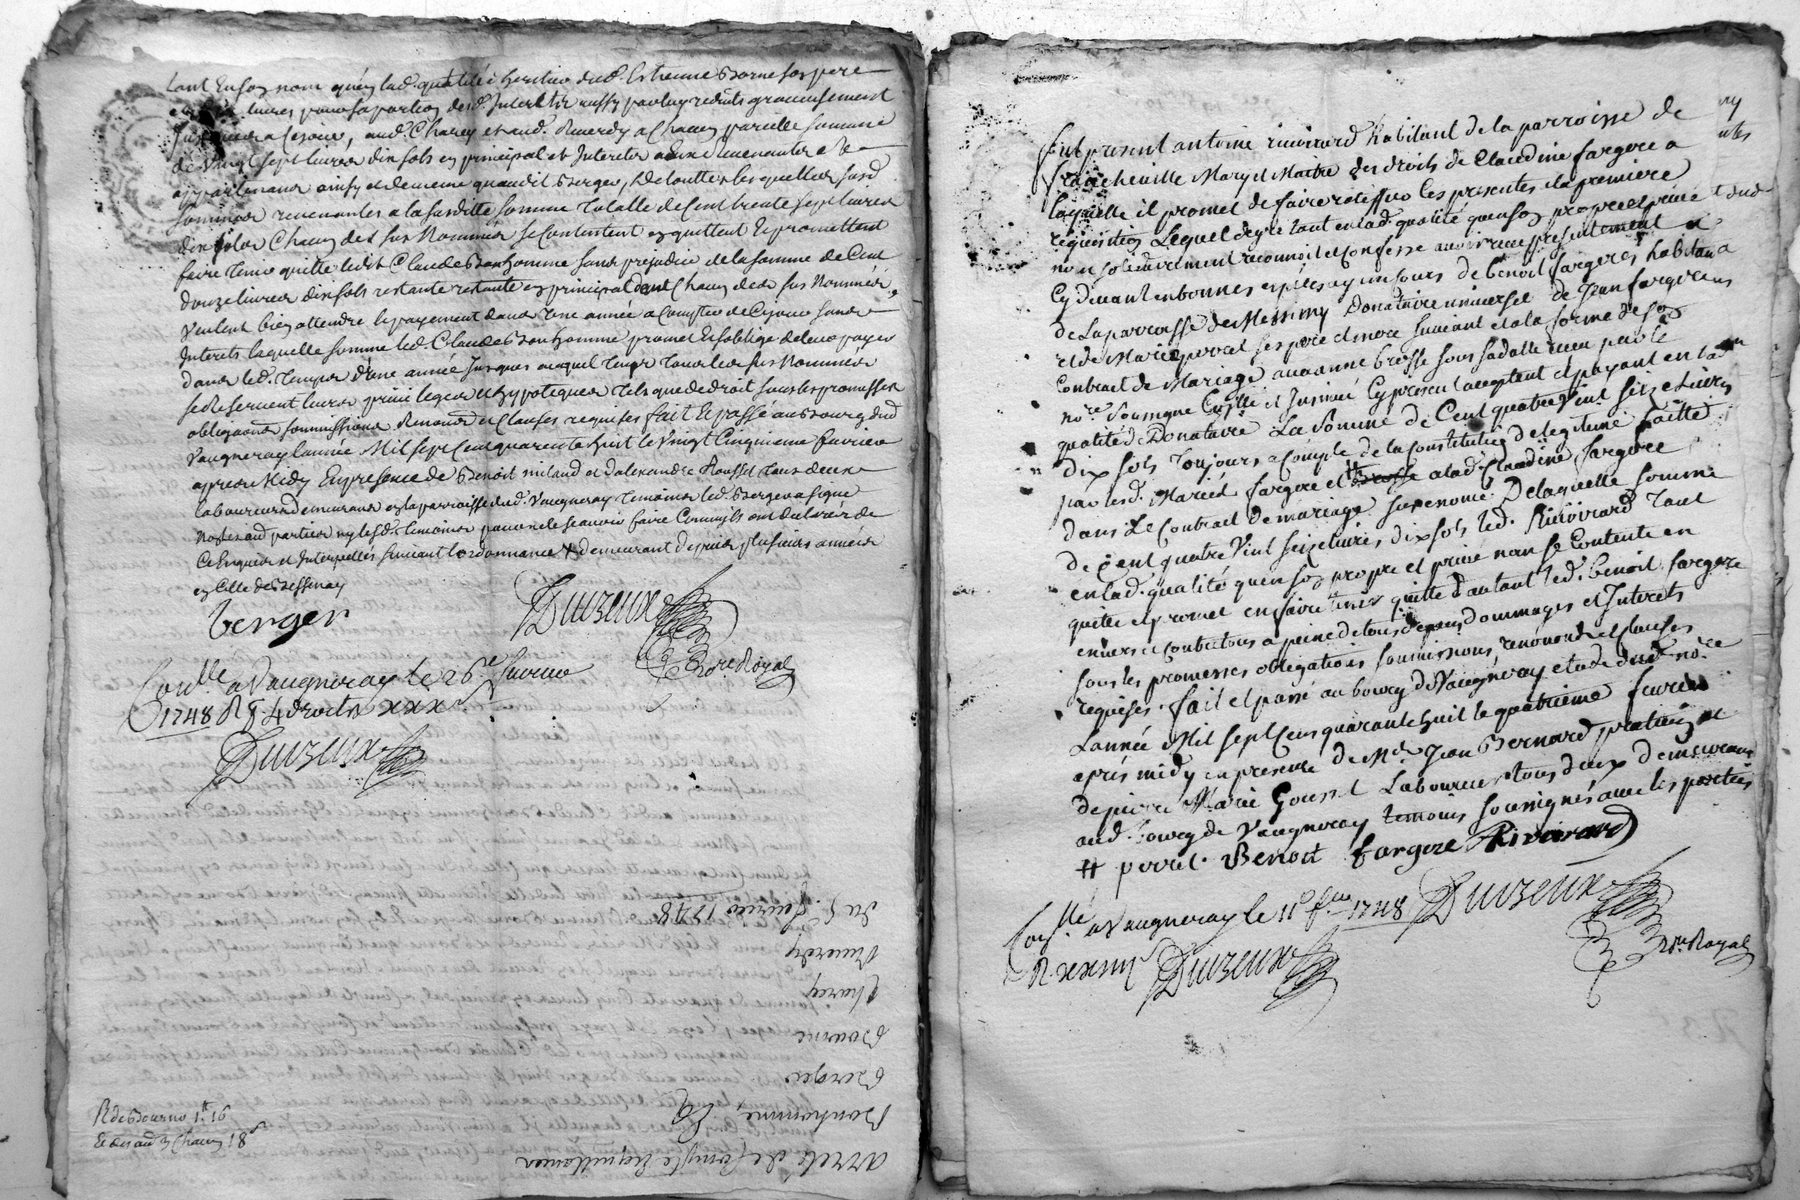 tant En son nom qu'en lad. qualité d'heritier dud. Estienne Borne son pere
livres pour sa portion desd. Interets aussy par luy reduits gracieusement
Jusques a ce jour, aud. Charey et aud. Riverdy a Chacun pareille somme
de vingt sept livres dix sols en principal et Interets a Eux
appartenants ainsy et de meme qu'audit Berger, de touttes lesquelles susd.
sommes revenantes a la susditte somme Totalle de Cent trente sept livres
dix sols Chacun des sus Nommés se Contentent en quittent Et promettent
faire Tenir quitte ledit Claude Bonhomme sans prejudice de la somme de Cent
douze livres dix sols restante en principal dont Chacun des sus Nommés
veulent bien attendre le payement dans Une année a Compter de Ce jour sans
Interets laquelle somme led. Claude Bonhomme promet Et s'oblige de leur payer
dans led. temps d'Une année Jusques auquel temps Tous les sus Nommés
se Reservent leurs privileges et hypoteques tels que de droit sous les promesses
obligaons soumissions Renonons et Clauses requises fait Et passé au Bourg dud.
Vaugneray l'année Mil sept Cent quarente huit le vingt Cinquieme fevrier
apres Midy En presence de Benoit miland et d'alexandre Rousset Tous deux
laboureurs demeurans en la parroisse dud. Vaugneray Temoins led. Berger a signe
Non les aud. parties ny lesd. temoins pour ne le scavoir faire Comm'ils ont declaré de
Ce Enquis et Interpellés suivant l'ordonnance # demeurant depuis plusieurs années
en Celle de Bessenay
berger
Duvzeux
Nore. Royal
Conllé a Vaugneray le 26e fevrier
1748 R 4 droits xxx s
Duvzeux
du 5e. fevrier 1748
Riverdy
Charey
Bourne
Berger
Bonhomme, Et
arrete de Compte Et quittance
R de Bourne 1lt 16
Et des aud. 3 Chacun 18s
Fut present antoine rivoirard habitant de la parroisse de
francheville Mary et Maitre des droits de Claudine fargere a
laquelle il promet de faire ratiffier les presentes a la premiere
requisition Lequel de gré tant en lad. qualité qu'en son propre et privé
nom solidairement reconnoit et Confesse avoir receu presentement
Cy devant en bonnes especes ayans cours de benoit fargere habitant
de La parroisse de Messimy Donataire universel de Jean fargere
et de Marie perret ses pere et mere suivant et a la forme de son
Contract de Mariage avec anne brosse sous sa datte receu par le
nore. soussigné Cy present acceptant et payant en lad.
qualité de Donataire La Somme de Cent quatre Vint seize Livres
Dix sols Toujours a Compte de la Constitution de legitime faitte
par lesd. Mariés fargere et # a lad. Claudine fargere
dans Le Contract de mariage susenoncé De laquelle somme
de Cent quatre Vint seize livres, dix sols led. Rivoirard Tant
en lad. qualité qu'en son propre et privé nom se Contente en
quitte et promet en faire tenir quitte d'autant led. benoit fargere
envers et contre tous a peine de tous depens dommages et Interets
sous les promesses obligations soumissions, renonons et clauses
requises. fait et passé au bourg de Vaugneray etude dud. nore
Lannée Mil sept Cens quarante huit le quatrieme fevrier
après midy en presence de Me. Jean Bernard praticien et
de pierre Marie Gousset Laboureur tous deux demeurans
aud. bourg de Vaugneray temoins soussignés avec les parties
# perret. Benoit fargere Rivoirard
Duvzeux
Nore Royal
Conllé a Vaugneray le 11e fer 1748
R. xxiiij s
Duvzeux